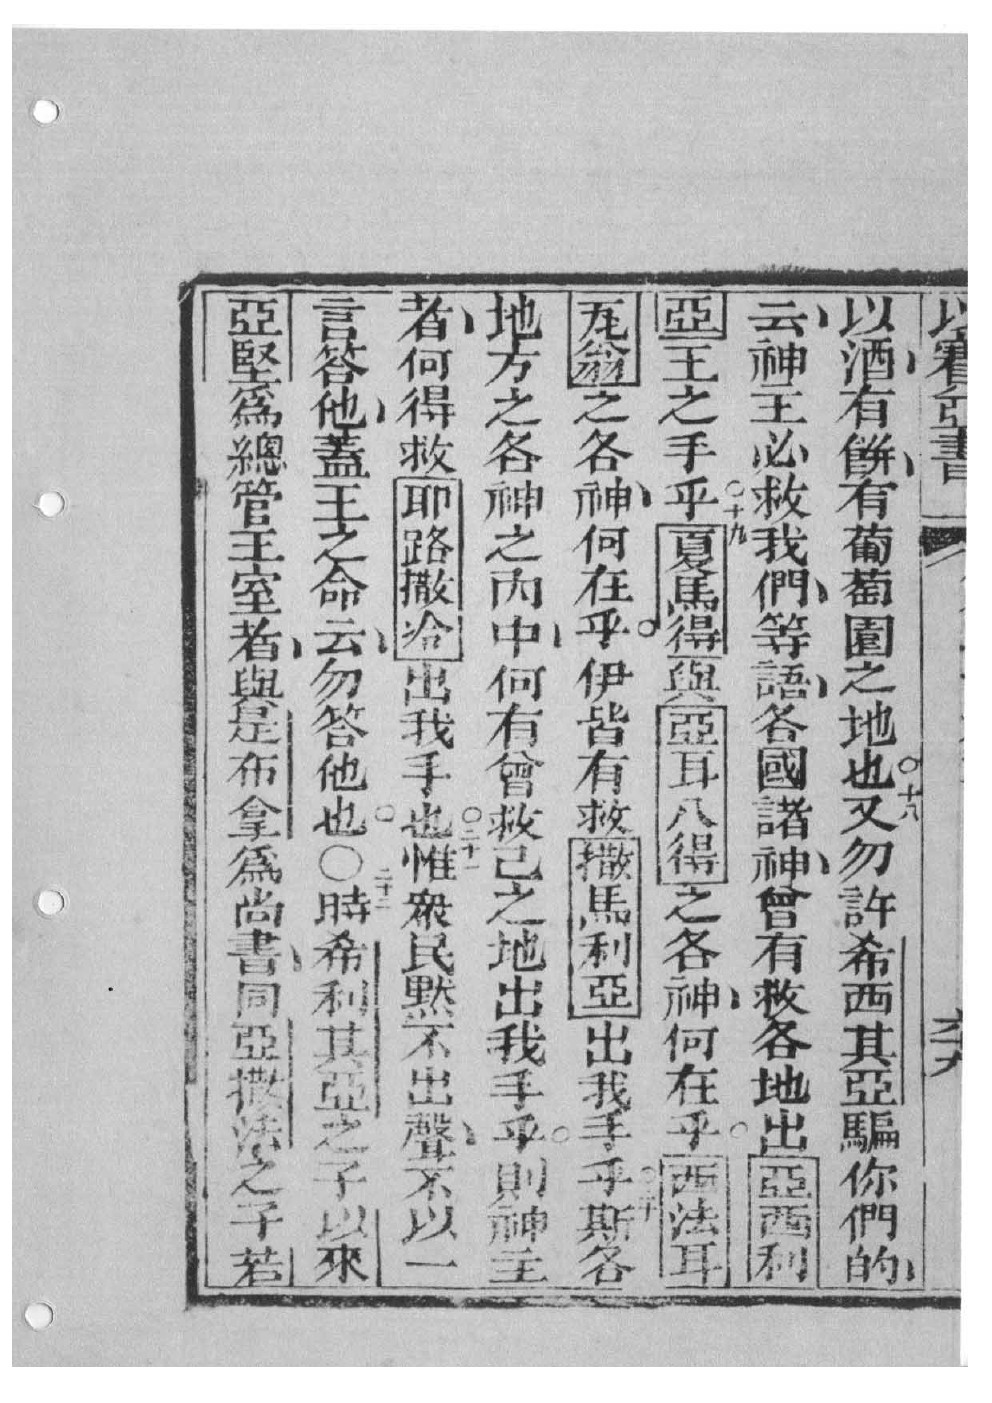 以賽亞書
以酒有餅有葡萄園之地也○十八又勿許希西其亞騙你們的
云神王必救我們等語各國諸神曾有救各地出亞西利
亞王之手乎○十九夏馬得與亞耳八得之各神何在乎○西法耳
瓦翁之各神何在乎○伊皆有救撒馬利亞出我手乎○二十斯各
地方之各神之內中何有曾救己之地出我手乎○則神主
者何得救耶路撒冷出我手也○二十一惟衆民默不出聲不以一
言答他蓋王之命云勿答他也○○二十二時希利其亞之子以來
亞堅爲總管王室者與是布拿爲尚書同亞撒法之子若